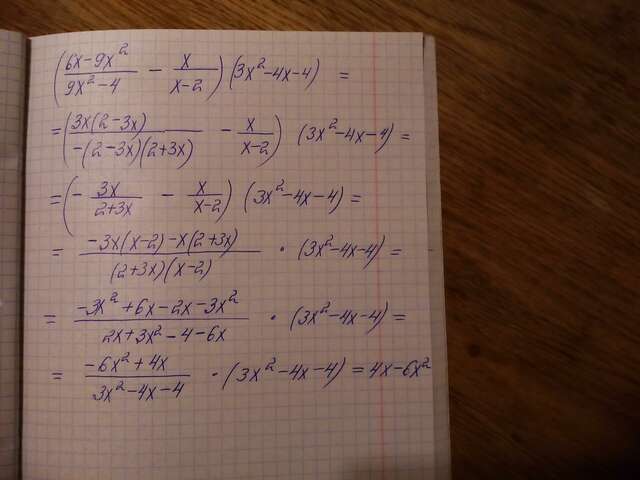 (6x-9x²/9x²-4 - x/x-2)(3x²-4x-4) =
=(3x(2-3x)/-(2-3x)(2+3x) - x/x-2) (3x²-4x-4) =
=(-3x/2+3x - x/x-2) (3x²-4x-4) =
= -3x(x-2)-x(2+3x)/(2+3x)(x-2) · (3x²-4x-4) =
= -3x²+6x-2x-3x²/2x+3x²-4-6x · (3x²-4x-4) =
= -6x²+4x/3x²-4x-4 · (3x²-4x-4) = 4x-6x²